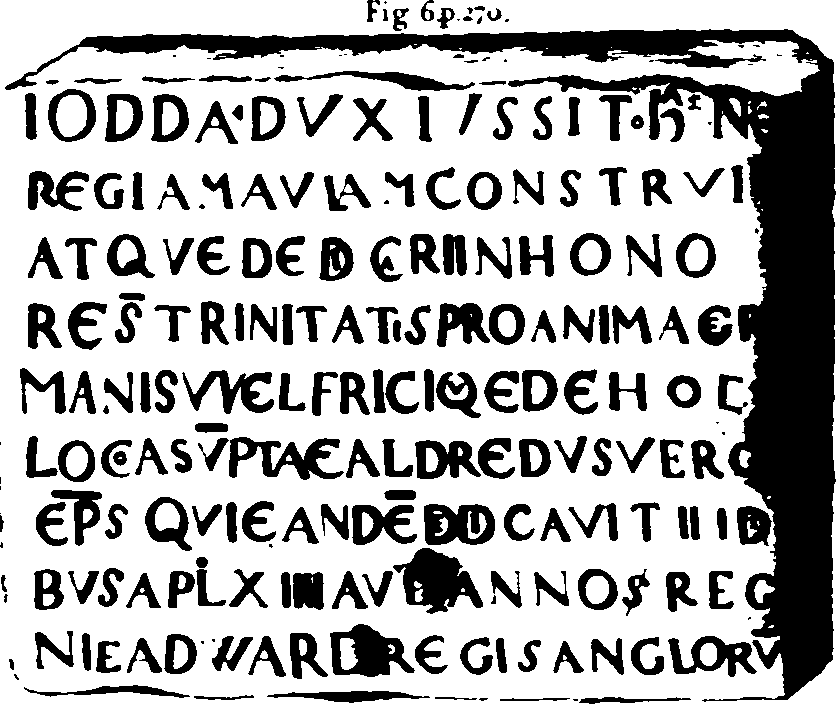 Fig 6.p.270.
IODDA·DVXI/SSIT·ħNE
REGIAMAVLAMCONSTRVI
ATQVEDEDICARIINHONO
RES̄TRINITATISPROANIMAGER
MANISVVELFRICIQEDEHOC
LOCOASV̄PTAEALDREDVSVERO
EP̄SQVIEANDĒDEDICAVITIIID
BVSAPLXIIIIAV ANNOSREG
NIEADWARD REGISANGLORV̄